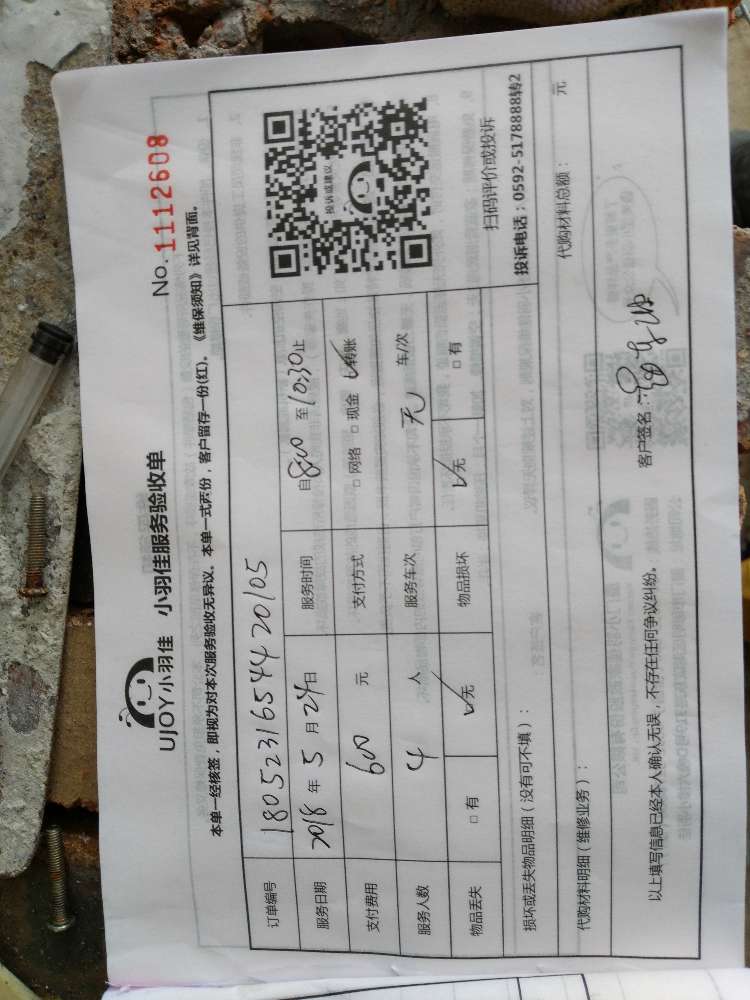 UJOY小羽佳 小羽佳服务验收单
No. 1112608
本单一经核签，即视为对本次服务验收无异议。本单一式两份，客户留存一份(红)。《维保须知》详见背面。
订单编号 18052316544 20105
服务日期 2018 年 5 月 24 日 服务时间 自 800 至 10:30 止
支付费用 600 元 支付方式 □ 网络 □ 现金 ✓转账
服务人数 4 人 服务车次 无 车/次
物品丢失 □ 有 ✓无 物品损坏 ✓无 □ 有
投诉或建议
扫码评价或投诉
投诉电话：0592-5178888转2
损坏或丢失物品明细（没有可不填）：
代购材料明细（维修业务）： 代购材料总额： 元
以上填写信息已经本人确认无误，不存在任何争议纠纷。 客户签名：